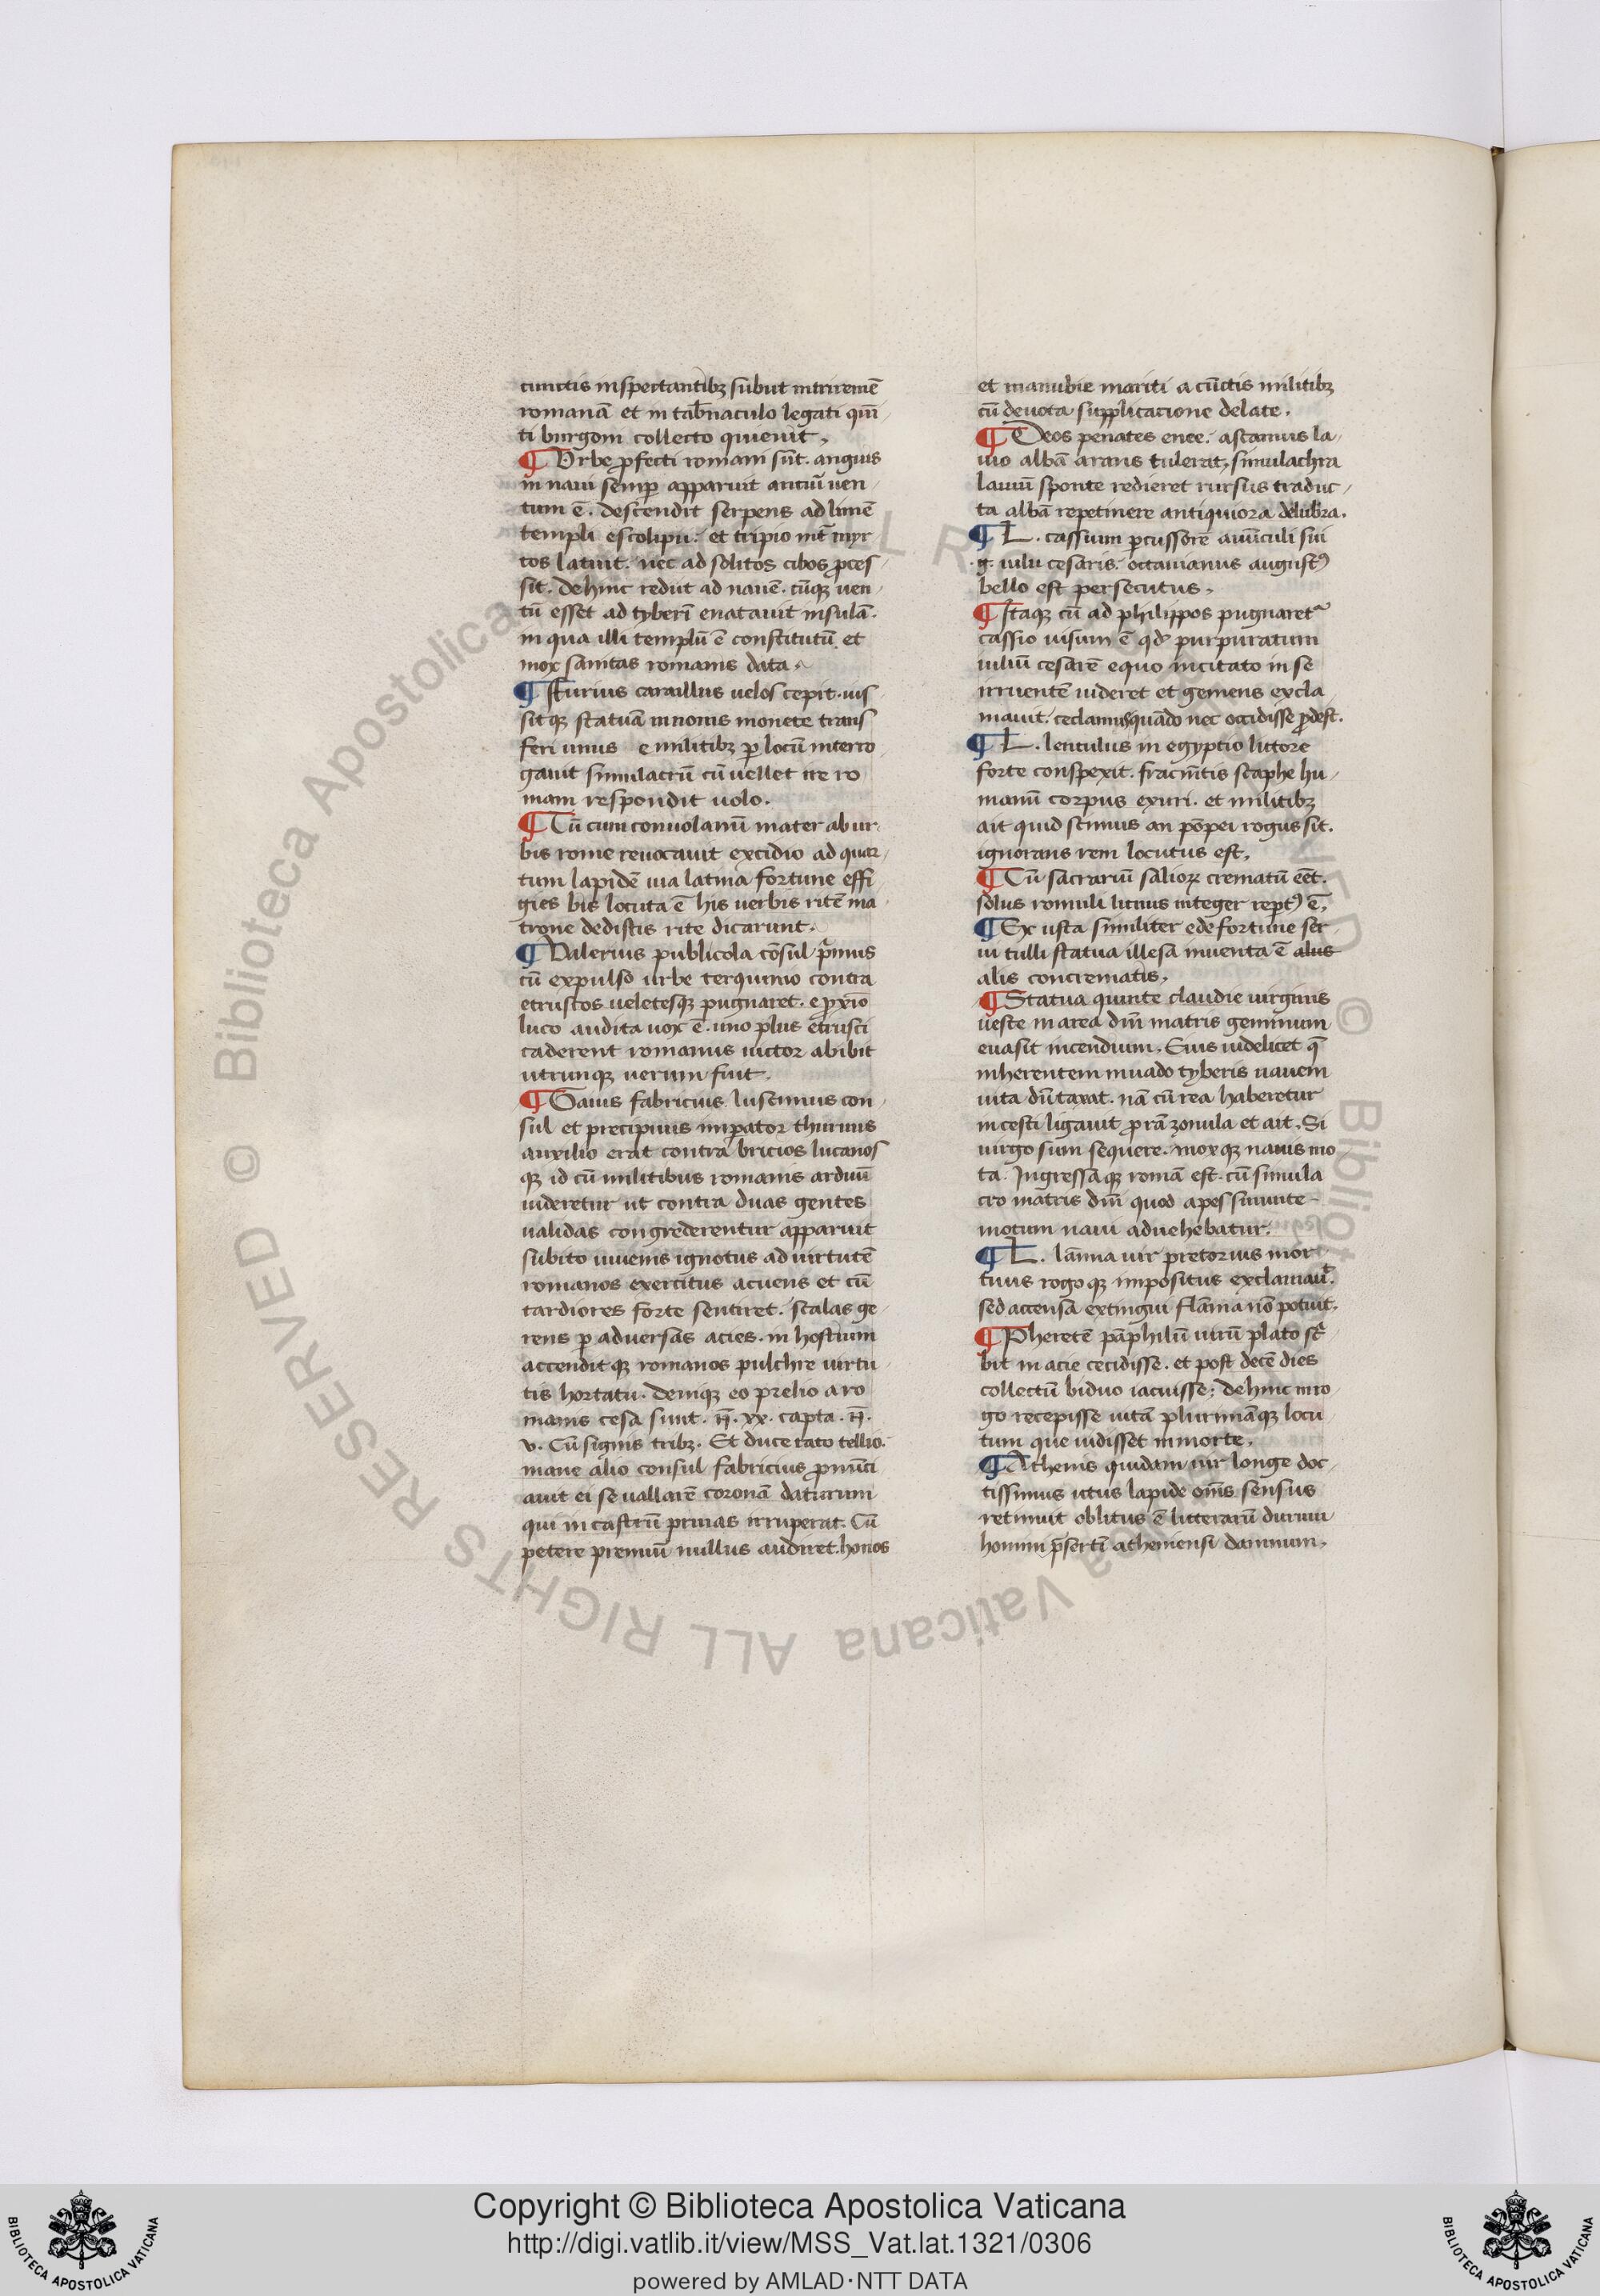 cunctis inspectantibꝫ subiit intriremē
romanā et in tab̄naculo legati qui᷑
ti burgom collecto quieuit,
¶ Vrbe ꝓfecti romani sūt. anguis
in naui semꝑ apparuit anciū uen-
tum ē. descendit serpens ad limē
templi escolipii: et tripio int̄ myr
tos latuit. nec ad solitos cibos ꝓces
sit. dehinc rediit ad nauē. cūqꝫ uen-
tū esset ad tyberī enatauit insulā.
in qua illi templū ē constitutū et
mox sanitas romanis data.
¶ Furius camillus uelos cepit. ius
sitqꝫ statuā innonis monete trans
feri unus e militibꝫ ꝑ locū interro
gauit simulacrū cū uellet ire ro
mam respondit uolo.
¶ Cū cum conuolanū mater ab ur-
bis rome reuocauit excidio ad quar-
tum lapidē uia latina fortune effi
gies bis locuta ē his uerbis ritē ma
trone dedistis rite dicarunt.
¶ Valerius publicola cōsul p̄mus
cū expulso urbe terquinio contra
etruscos ueletesqꝫ pugnaret. e ꝓxīo
luco audita uox ē. uno plus etrusci
caderent romanus uictor abibit
utrunqꝫ uerum fuit.
¶ Gaius fabricius lusennus con-
sul et precipuus imꝑator thurinis
auxilio erat contra bricios lucanos
qꝫ id cū militibus romanis arduū
uideretur ut contra duas gentes
ualidas congrederentur apparuit
subito iuuenis ignotus ad uirtutē
romanos exercitus acuens et cū
tardiores forte sentiret. scalas ge-
rens ꝑ aduersas acies. in hostium
accenditqꝫ romanos pulchre uirtu-
tis hortatu. deniqꝫ eo prelio a ro
manis cesa sunt. n̄. xx. capta. n̄.
v. Cū signis tribꝫ. Et duce rato tellio.
mane alio consul fabricius ꝓnūci
auit ei se uallarē coronā daturum
qui in castrū primas irruperat. Cū
petere premiū nullus audiret. honos
et manubie mariti a cūctis militibꝫ
cū deuota supplicacione delate.
¶ Deos penates enee. ascanius la-
uio albā arans tulerat, simulachra
lauiū sponte redieret rursus traduc-
ta albā repetinere antiquiora delubra.
¶ L. cassium ꝑcussorē auūculi sui
.g. iulii cesaris. octauianus august⁹
bello est persecutus,
¶ Itaqꝫ cū ad philippos pugnaret᷑
cassio uisum ē qd̓ purpuratum
iuliū cesarē equo incitato in se
irruentē uideret et gemens excla
mauit. ceclamusquādo nec occidisse ꝓdest.
¶ L. lentulus in egyptio littore
forte conspexit. fracm̄tis scaphe hu-
manū corpus exuri. et militibꝫ
ait quid scimus an pōpei rogus sit.
ignorans rem locutus est,
¶ Cū sacrariū salioꝝ crematū eēt.
solus romuli lituus integer reꝑt⁹ ē,
¶ Ex usta similiter ede fortune ser-
ui tulli statua illesa inuenta ē alus
alis concrematis,
¶ Statua quinte claudie uirginis
ueste in area dm̄ matris geminum
euasit incendium. Eius uidelicet q̄
inherentem in uado tyberis nauem
uita dūtaxat. nā cū rea haberetur
incesti ligauit prorā zonula et ait. Si
uirgo sum sequere. moxqꝫ nauis mo
ta. Ingressaqꝫ romā est. cū simula
cro matris dm̄ quod apessinunte
motum naui aduehebatur.
¶ L. lāma uir pretorius mor
tuus rogoqꝫ impositus exclamau᷑.
sed accensa extingui flāma nō potuit.
¶ Pheretē pāphiliū uirū plato sc̄
bit in acie cecidisse. et post decē dies
collectū biduo iacuisse; dehinc in ro
go recepisse uitā plurimāqꝫ locu
tum que uidisset in morte,
¶ Athenis quidam uir longe doc-
tissimus ictus lapide om̄s sensus
retinuit oblitus ē litterarū durum
homini p̄sertī atheniensi damnum,
Copyright © Biblioteca Apostolica Vaticana
http://digi.vatlib.it/view/MSS_Vat.lat.1321/0306
powered by AMLAD·NTT DATA
BIBLIOTECA APOSTOLICA VATICANA
BIBLIOTECA APOSTOLICA VATICANA
© Biblioteca Apostolica Vaticana ALL RIGHTS RESERVED